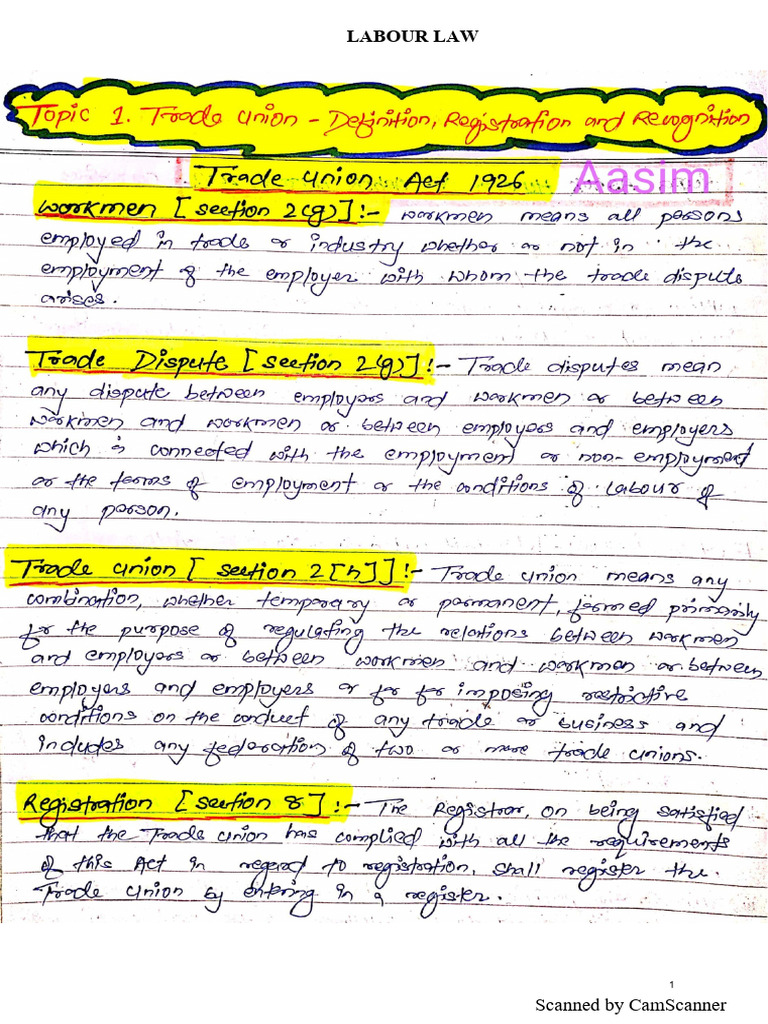 LABOUR LAW
Topic 1. Trade Union - Definition, Registration and Recognition
Trade Union Act 1926
Aasim
Workmen [section 2(g)] :- workmen means all persons
employed in trade or industry whether or not in the
employment of the employer with whom the trade dispute
arises.
Trade Dispute [section 2(g)] :- Trade disputes mean
any dispute between employers and workmen or between
workmen and workmen or between employers and employers
which is connected with the employment or non-employment
or the terms of employment or the conditions of labour of
any person.
Trade Union [section 2[h]] :- Trade union means any
combination, whether temporary or permanent, formed primarily
for the purpose of regulating the relations between workmen
and employers or between workmen and workmen or between
employers and employers or for for imposing restrictive
conditions on the conduct of any trade or business and
includes any federation of two or more trade unions.
Registration [section 8] :- The Registrar, on being satisfied
that the Trade Union has complied with all the requirements
of this Act in regard to registration, shall register the
Trade Union by entering in a register.
1
Scanned by CamScanner